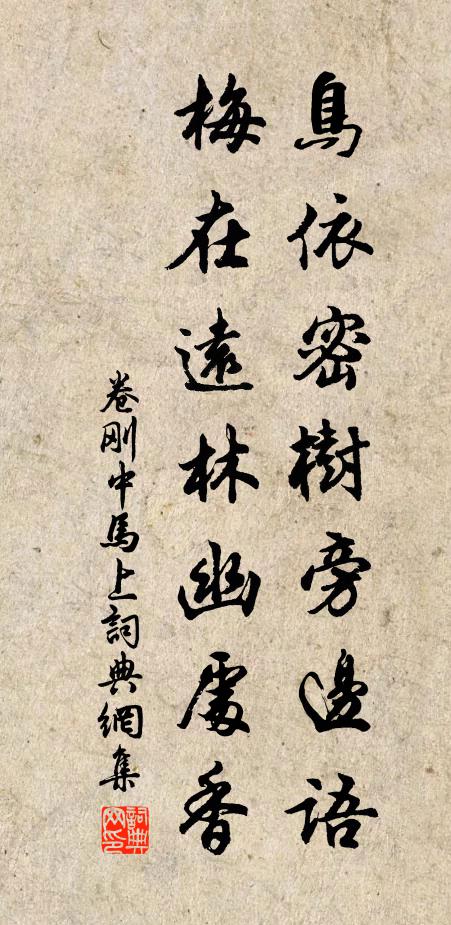 鳥依密樹旁邊語
梅在遠林幽處香
卷剛中馬上詞典網集
詞典網印